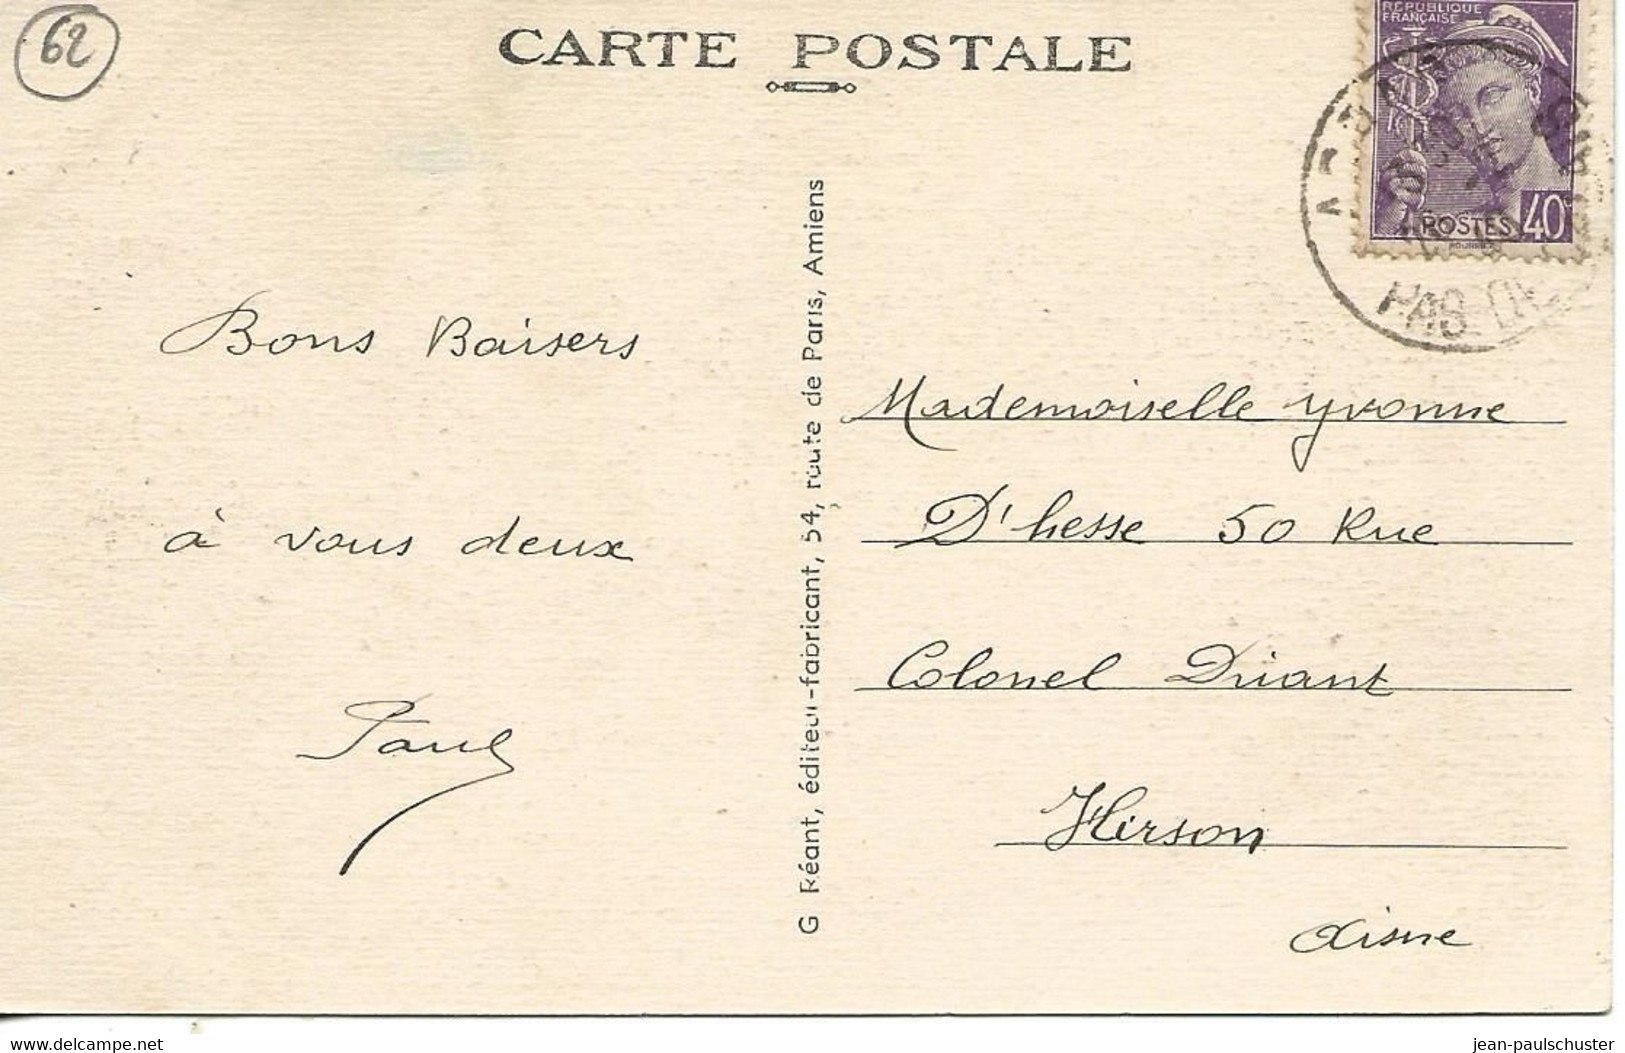 62
CARTE POSTALE
RÉPUBLIQUE
FRANÇAISE
POSTES 40c
PAS DE
Bons Baisers
à vous deux
Paul
G Réant, éditeur-fabricant, 54, route de Paris, Amiens
Mademoiselle Yvonne
D'hesse 50 Rue
Colonel Driant
Hirson
Aisne
delcampe.net
jean-paulschuster